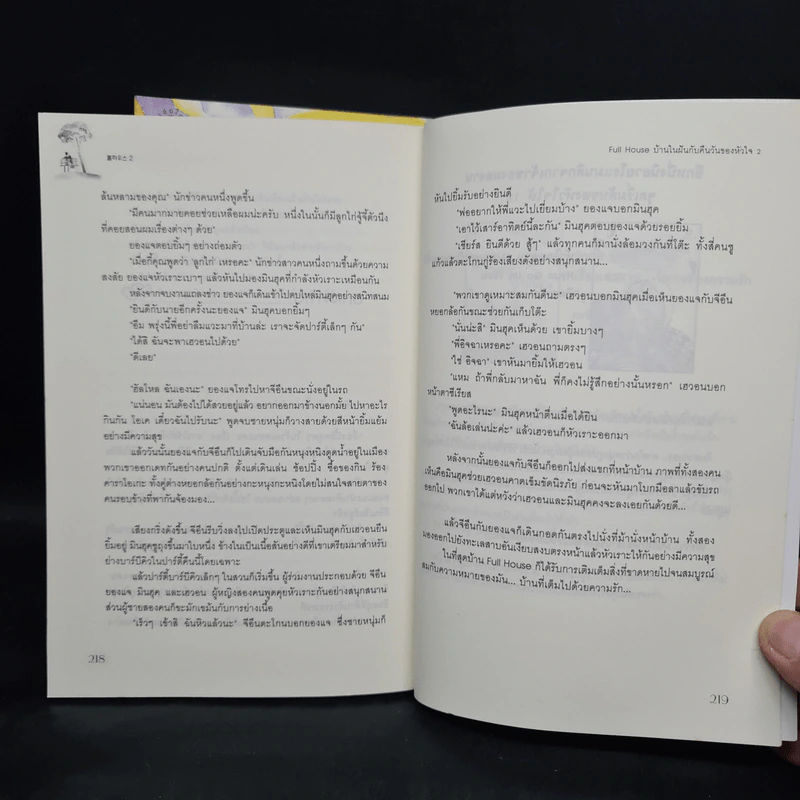 풀하우스 2
ล้นหลามของคุณ" นักข่าวคนหนึ่งพูดขึ้น
"มีคนมากมายคอยช่วยเหลือผมน่ะครับ หนึ่งในนั้นก็มีลูกไก่จู้จี้ตัวนึง
ที่คอยสอนผมเรื่องต่างๆ ด้วย"
ยองแจตอบยิ้มๆ อย่างถ่อมตัว
"เมื่อกี้คุณพูดว่า 'ลูกไก่' เหรอคะ" นักข่าวสาวคนหนึ่งถามขึ้นด้วยความ
สงสัย ยองแจหัวเราะเบาๆ แล้วหันไปมองมินฮุคที่กำลังหัวเราะเหมือนกัน
หลังจากจบงานแถลงข่าว ยองแจก็เดินเข้าไปตบไหล่มินฮุคอย่างสนิทสนม
"ยินดีกับนายอีกครั้งนะยองแจ" มินฮุคบอกยิ้มๆ
"อืม พรุ่งนี้พี่อย่าลืมแวะมาที่บ้านล่ะ เราจะจัดปาร์ตี้เล็กๆ กัน"
"ได้สิ ฉันจะพาเฮวอนไปด้วย"
"ดีเลย"
"ฮัลโหล ฉันเองนะ" ยองแจโทรไปหาจีอึนขณะนั่งอยู่ในรถ
"แน่นอน มันต้องไปได้สวยอยู่แล้ว อยากออกมาข้างนอกมั้ย ไปหาอะไร
กินกัน โอเค เดี๋ยวฉันไปรับนะ" พูดจบชายหนุ่มก็วางสายด้วยสีหน้ายิ้มแย้ม
อย่างมีความสุข
แล้ววันนั้นยองแจกับจีอึนก็ไปเดินจับมือกันหนุงหนิงดูดน้ำอยู่ในเมือง
พวกเขาออกเดทกันอย่างคนปกติ ตั้งแต่เดินเล่น ช้อปปิ้ง ซื้อของกิน ร้อง
คาราโอเกะ ทั้งคู่ต่างหยอกล้อกันอย่างกะหนุงกะหนิงโดยไม่สนใจสายตาของ
คนรอบข้างที่พากันจ้องมอง...
เสียงกริ่งดังขึ้น จีอึนรีบวิ่งลงไปเปิดประตูและเห็นมินฮุคกับเฮวอนยืน
ยิ้มอยู่ มินฮุคชูถุงขึ้นมาใบหนึ่ง ข้างในเป็นเนื้อสันอย่างดีที่เขาเตรียมมาสำหรับ
ย่างบาร์บีคิวในปาร์ตี้คืนนี้โดยเฉพาะ
แล้วปาร์ตี้บาร์บีคิวเล็กๆ ในสวนก็เริ่มขึ้น ผู้ร่วมงานประกอบด้วย จีอึน
ยองแจ มินฮุค และเฮวอน ผู้หญิงสองคนพูดคุยหัวเราะกันอย่างสนุกสนาน
ส่วนผู้ชายสองคนก็ขะมักเขม้นกับการย่างเนื้อ
"เร็วๆ เข้าสิ ฉันหิวแล้วนะ" จีอึนตะโกนบอกยองแจ ซึ่งชายหนุ่มก็
218
Full House บ้านในฝันกับคืนวันของหัวใจ 2
หันไปยิ้มรับอย่างยินดี
"พ่ออยากให้พี่แวะไปเยี่ยมบ้าง" ยองแจบอกมินฮุค
"เอาไว้เสาร์อาทิตย์นี้ละกัน" มินฮุคตอบยองแจด้วยรอยยิ้ม
"เชียร์ส ยินดีด้วย สู้ๆ" แล้วทุกคนก็มานั่งล้อมวงกันที่โต๊ะ ทั้งสี่คนชู
แก้วแล้วตะโกนกู่ร้องเสียงดังอย่างสนุกสนาน...
"พวกเขาดูเหมาะสมกันดีนะ" เฮวอนบอกมินฮุคเมื่อเห็นยองแจกับจีอึน
หยอกล้อกันขณะช่วยกันเก็บโต๊ะ
"นั่นน่ะสิ" มินฮุคเห็นด้วย เขายิ้มบางๆ
"พี่อิจฉาเหรอคะ" เฮวอนถามตรงๆ
"ใช่ อิจฉา" เขาหันมายิ้มให้เฮวอน
"แหม ถ้าพี่กลับมาหาฉัน พี่ก็คงไม่รู้สึกอย่างนั้นหรอก" เฮวอนบอก
หน้าตาซีเรียส
"พูดอะไรนะ" มินฮุคหน้าตื่นเมื่อได้ยิน
"ฉันล้อเล่นน่ะค่ะ" แล้วเฮวอนก็หัวเราะออกมา
หลังจากนั้นยองแจกับจีอึนก็ออกไปส่งแขกที่หน้าบ้าน ภาพที่ทั้งสองคน
เห็นคือมินฮุคช่วยเฮวอนคาดเข็มขัดนิรภัย ก่อนจะหันมาโบกมือลาแล้วขับรถ
ออกไป พวกเขาได้แต่หวังว่าเฮวอนและมินฮุคคงจะลงเอยกันด้วยดี...
แล้วจีอึนกับยองแจก็เดินกอดกันตรงไปนั่งที่ม้านั่งหน้าบ้าน ทั้งสอง
มองออกไปยังทะเลสาบอันเงียบสงบตรงหน้าแล้วหัวเราะให้กันอย่างมีความสุข
ในที่สุดบ้าน Full House ก็ได้รับการเติมเต็มสิ่งที่ขาดหายไปจนสมบูรณ์
สมกับความหมายของมัน... บ้านที่เต็มไปด้วยความรัก...
219